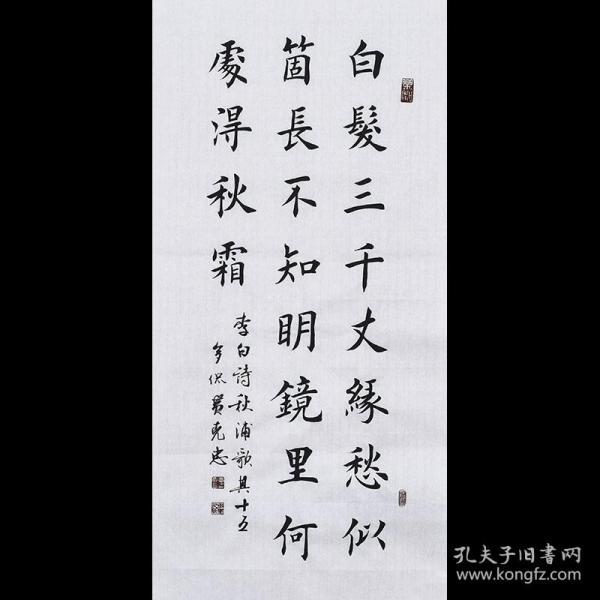 白髮三千丈緣愁似
箇長不知明鏡里何
處得秋霜
李白詩秋浦歌其十五
克忠
孔夫子旧書网
www.kongfz.com